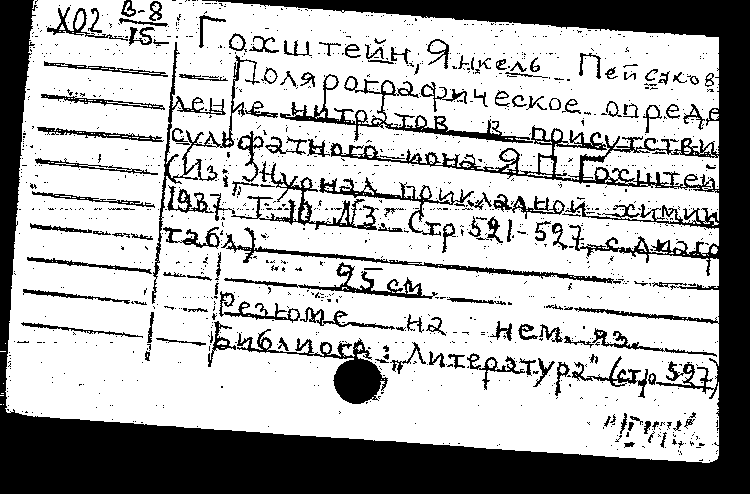 Х02 В-8
15
Гохштейн, Янкель Пейсахов
Полярографическое опреде
ление нитратов в присутстви
сульфатного иона. Я. П. Гохштей
(Из: „Журнал прикладной химии
1937. Т. 10, №3." Стр. 521-527, с диагр
табл.)
25 см.
Резюме на нем. яз.
Библиогр.: „Литература" (стр. 527)